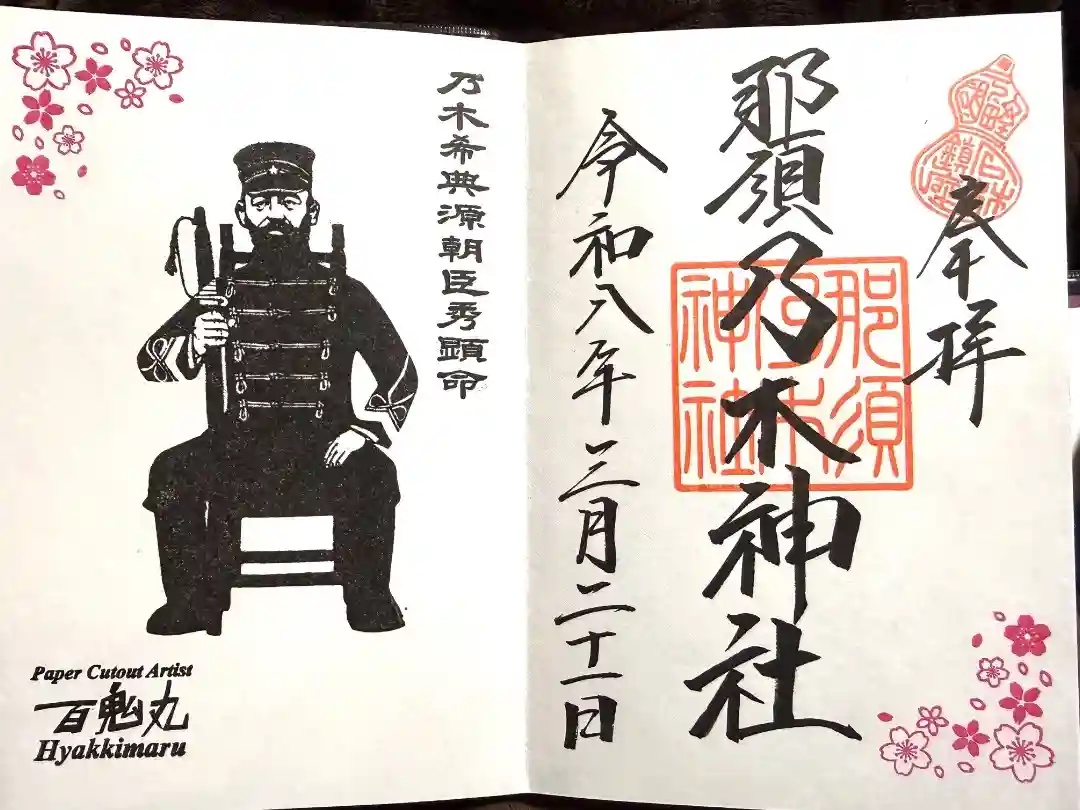 奉拝
那須乃木神社
那須
神社
令和八年三月二十一日
乃木希典源朝臣秀顕命
Paper Cutout Artist
百鬼丸
Hyakkimaru